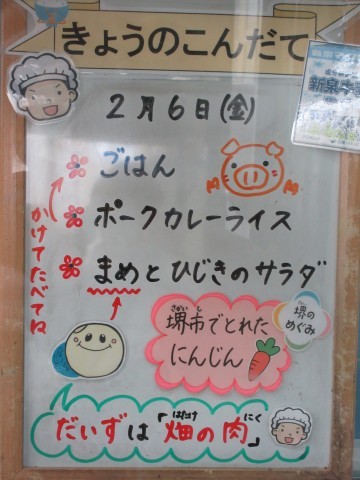 きょうのこんだて
2月6日(金)
ごはん
ポークカレーライス
まめとひじきのサラダ
かけてたべてね
堺市でとれた
さかいし
にんじん
堺の
さかい
めぐみ
だいずは「畑の肉」
はたけ
にく